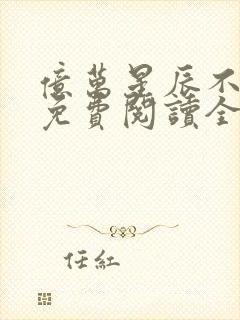 億萬星辰不
免費閱讀全
任紅